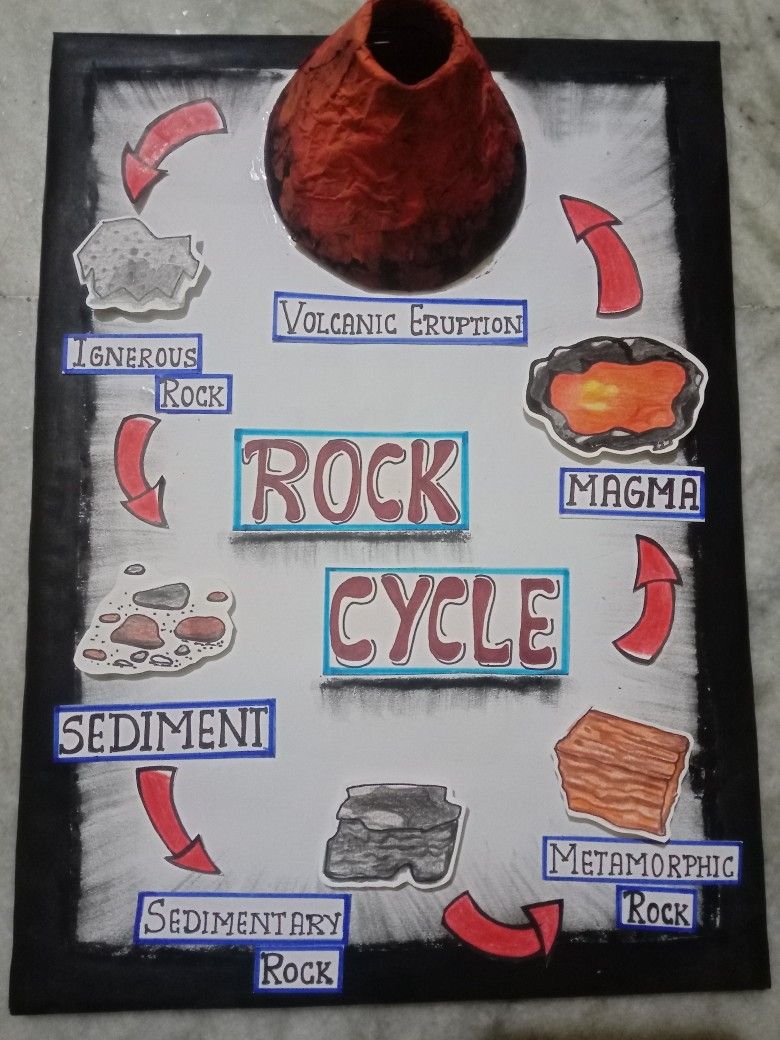 VOLCANIC ERUPTION
IGNEROUS
ROCK
ROCK
CYCLE
MAGMA
SEDIMENT
METAMORPHIC
ROCK
SEDIMENTARY
ROCK